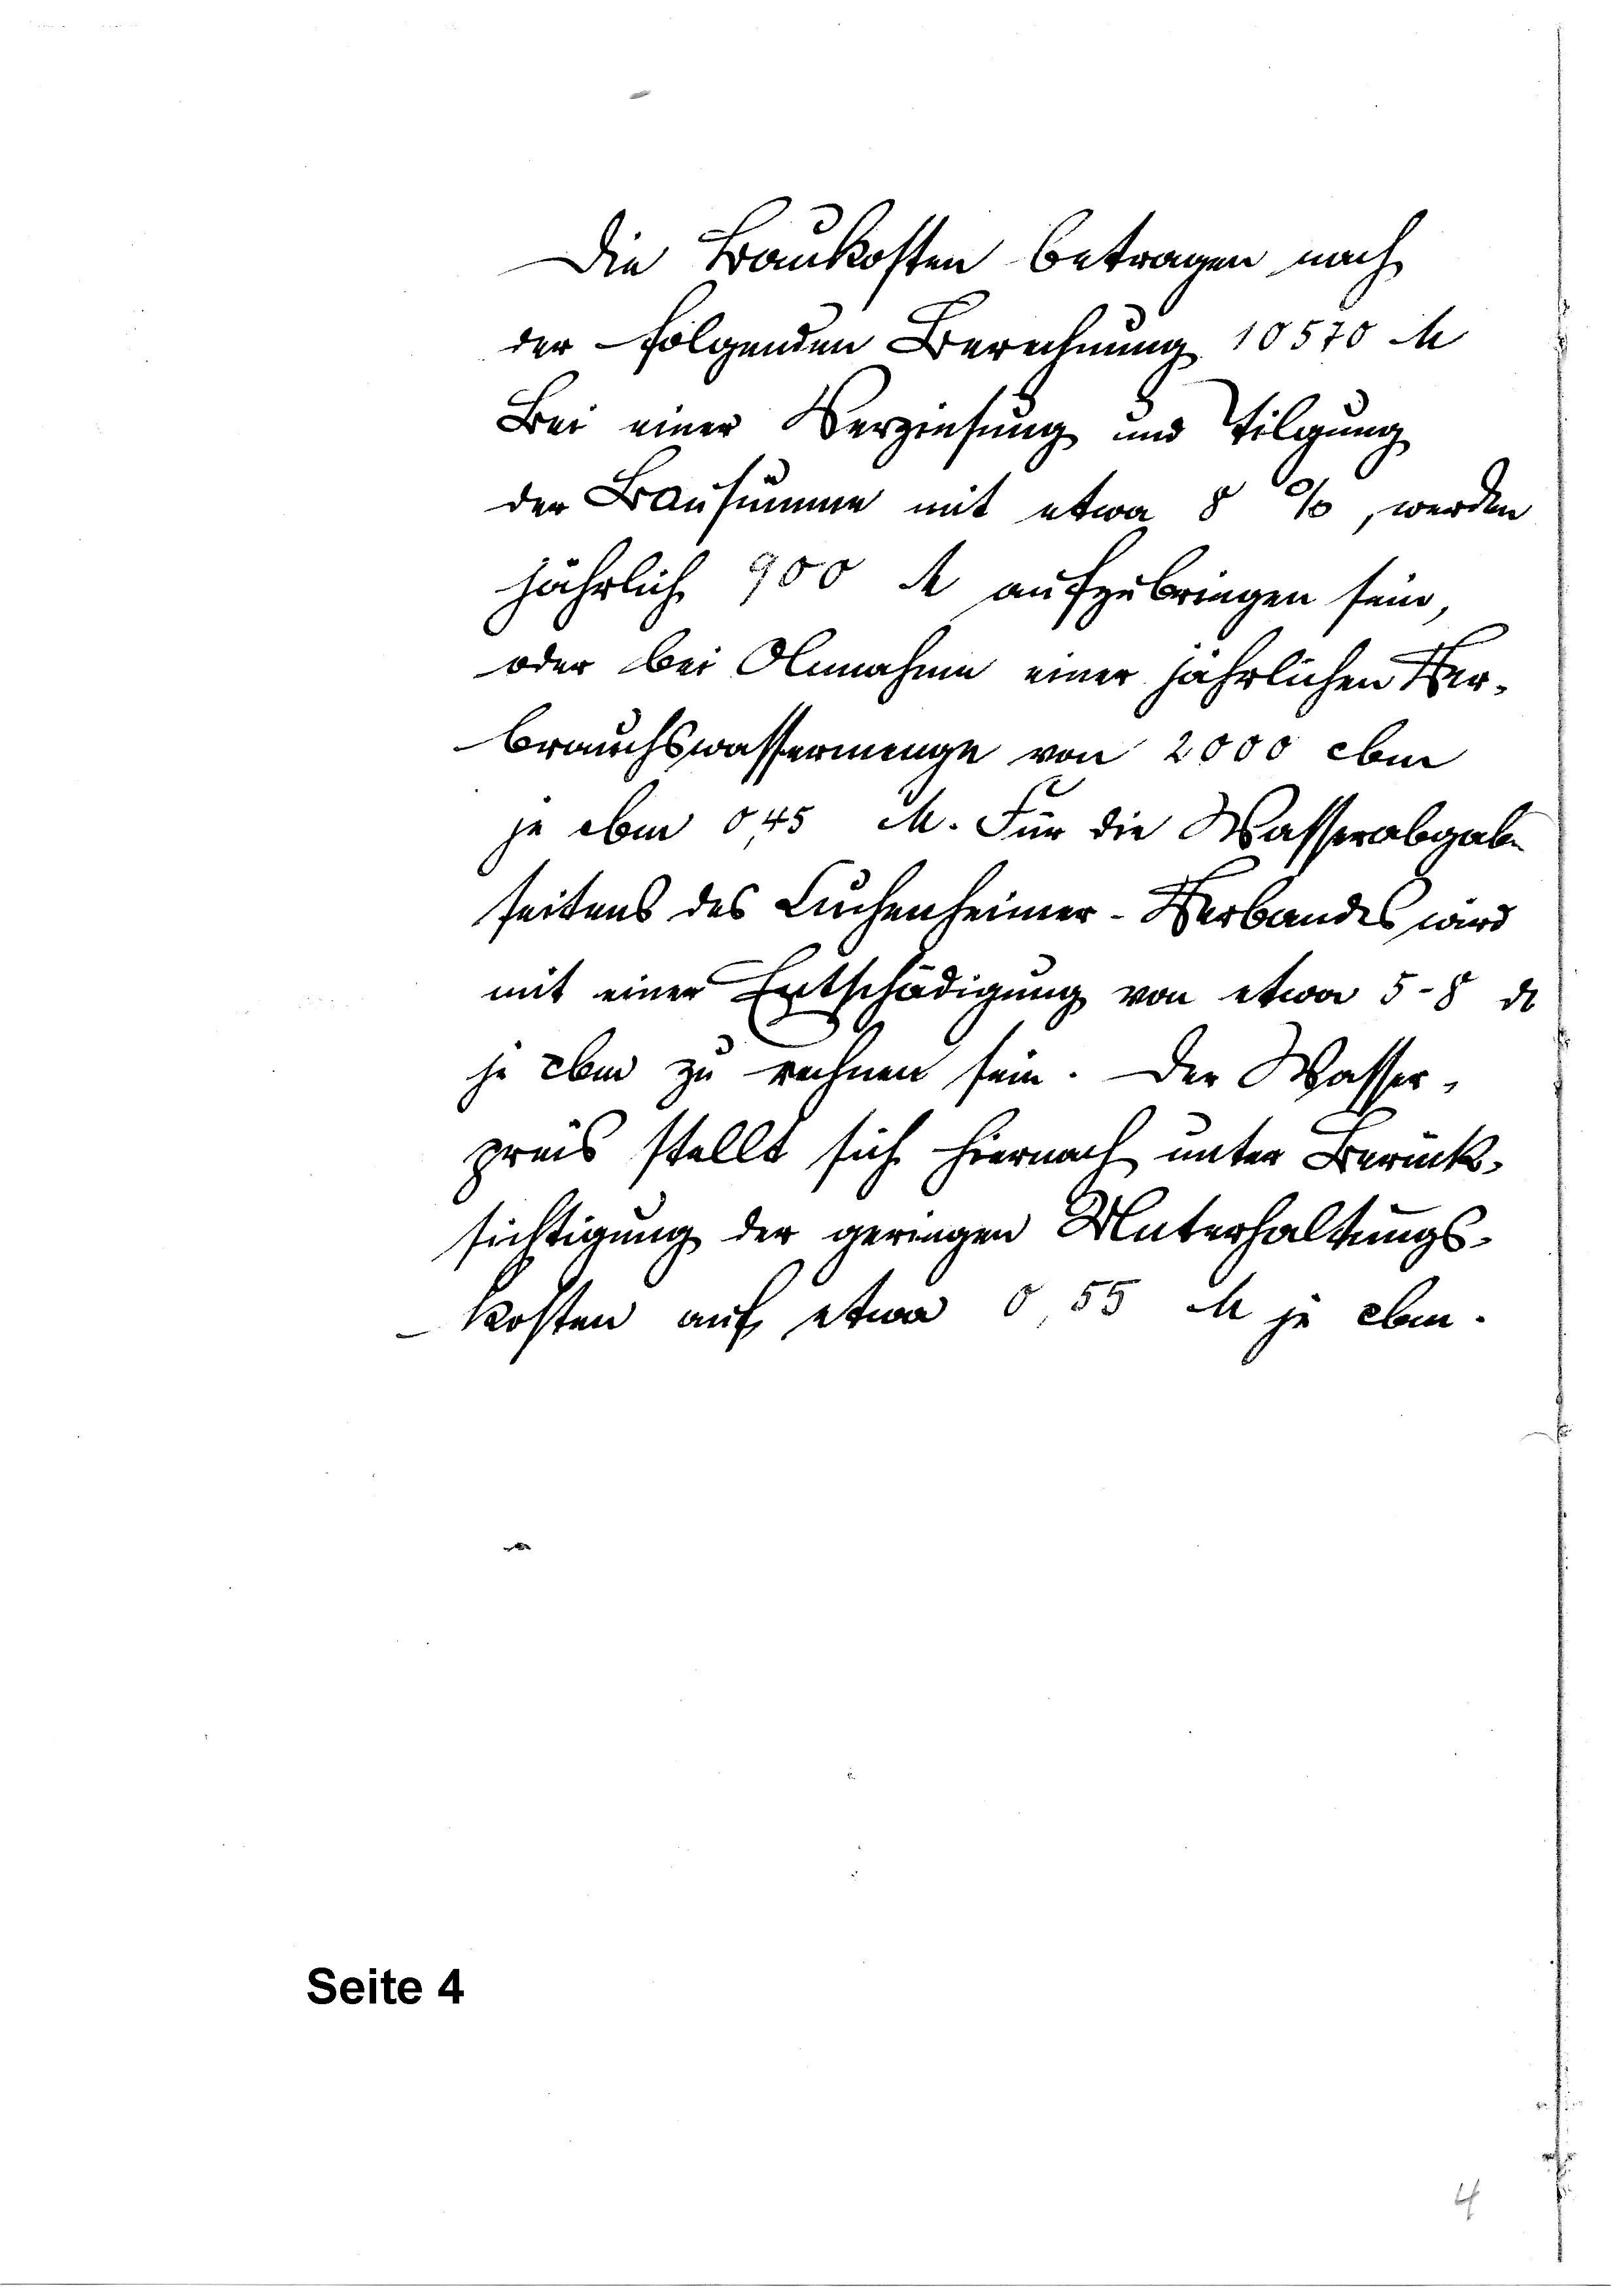 Die Baukosten betragen nach
der folgenden Berechnung 10570 M
Bei einer Verzinsung und Tilgung
der Bausumme mit etwa 8 %, werden
jährlich 900 M aufzubringen sein,
oder bei Annahme einer jährlichen Ver-
brauchswassermenge von 2000 cbm
je cbm 0,45 M. Für die Wasserabgabe
seitens des Cuchenheimer-Verbandes wird
mit einer Entschädigung von etwa 5-8 ₰
je cbm zu rechnen sein. Der Wasser-
preis stellt sich hiernach unter Berück-
sichtigung der geringen Unterhaltungs-
kosten auf etwa 0,55 M je cbm.
Seite 4
4